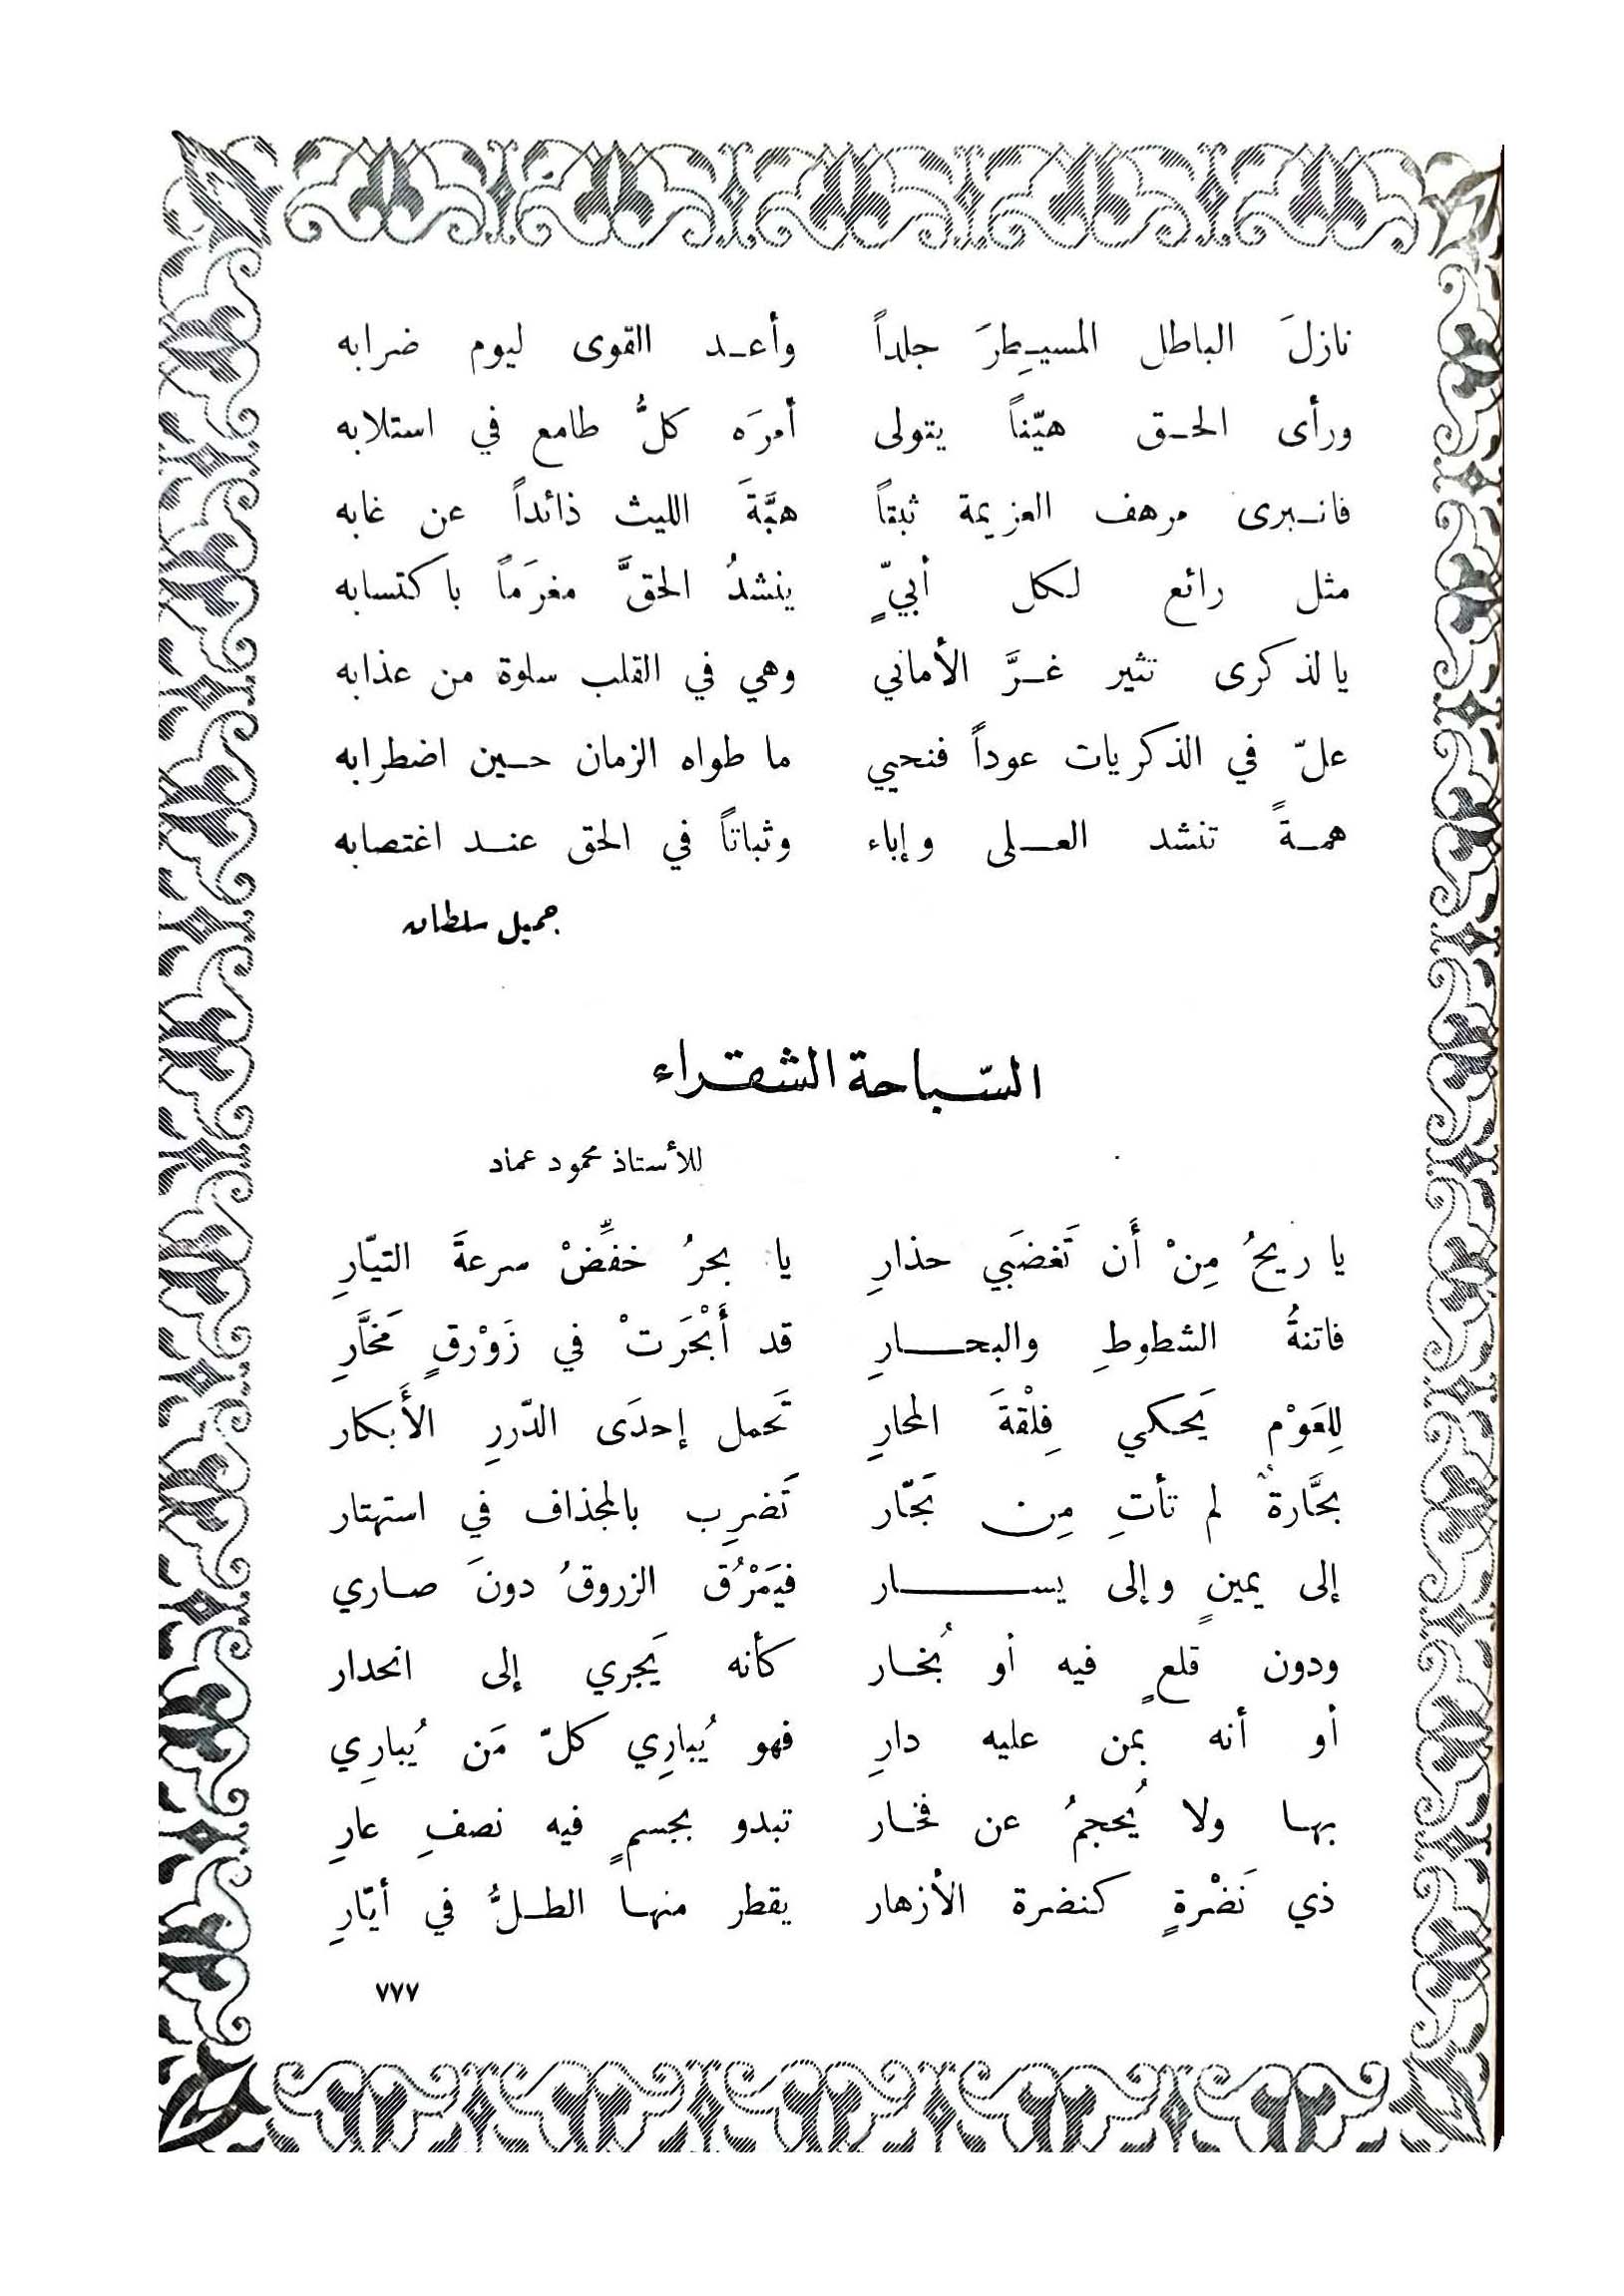 نازلَ الباطل المسيطِرَ جلداً وأعد القوى ليوم ضرابه
ورأى الحق هيّناً يتولى أمرَه كلُّ طامع في استلابه
فانبرى مرهف العزيمة ثبتاً هبَّةَ الليث ذائداً عن غابه
مثل رائع لكل أبيٍّ ينشدُ الحقَّ مغرَماً باكتسابه
يالذكرى تثير غرَّ الأماني وهي في القلب سلوة من عذابه
علّ في الذكريات عوداً فنحيي ما طواه الزمان حين اضطرابه
همةً تنشد العلى وإباء وثباتاً في الحق عند اغتصابه
جميل سلطان
السّباحة الشقراء
للأستاذ محمود عماد
يا ريحُ مِنْ أَن تَغضَبي حذارِ يا بحرُ خفِّضْ سرعةَ التيّارِ
فاتنةُ الشطوطِ والبحارِ قد أَبْحَرَتْ في زَوْرقٍ مَخَّارِ
لِلعَوْم يَحكي فِلْقةَ المحارِ تَحمل إحدَى الدّررِ الأَبكار
بحَّارةٌ لم تأتِ مِن بَحّار تَضرِب بالمجذاف في استهتار
إلى يمينٍ وإلى يسار فيَمْرُق الزروقُ دونَ صاري
ودون قلعٍ فيه أو بُخار كأنه يَجري إلى انحدار
أو أنه بمن عليه دارِ فهو يُبارِي كلّ مَن يُبارِي
بها ولا يُحجمُ عن فخار تبدو بجسمٍ فيه نصفِ عارِ
ذي نَضْرةٍ كنضرة الأزهار يقطر منها الطلُّ في أيّارِ
٧٧٧